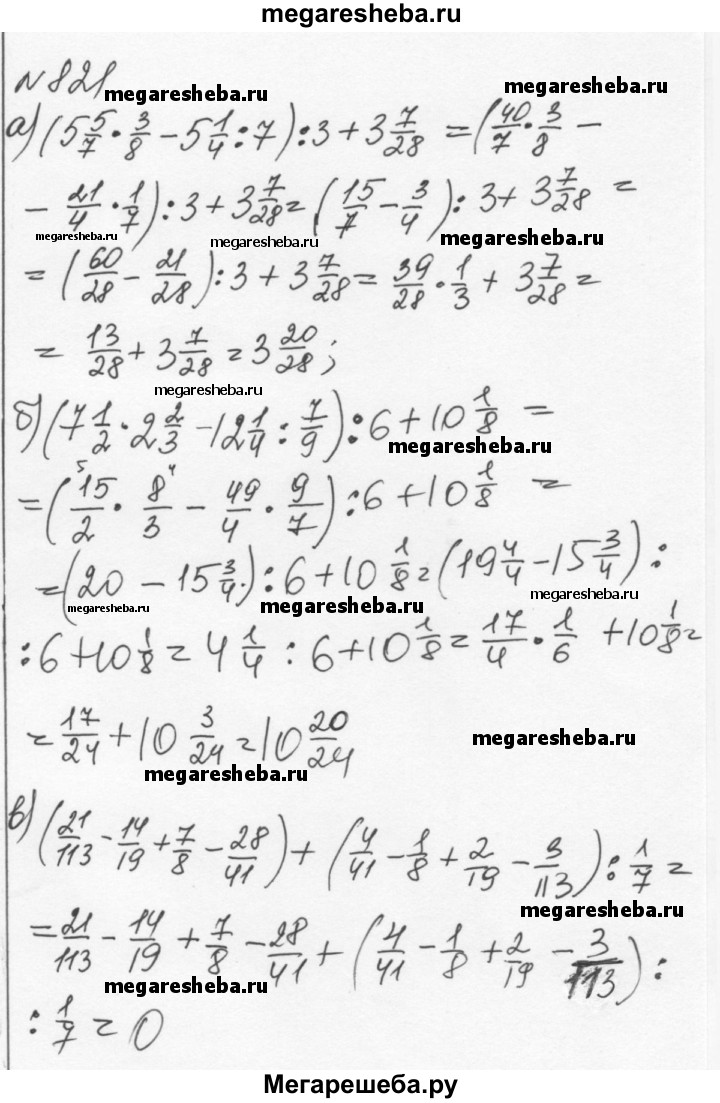 megaresheba.ru
№821
megaresheba.ru megaresheba.ru
а) (5 5/7 · 3/8 − 5 1/4 : 7) : 3 + 3 7/28 = (40/7 · 3/8 −
− 21/4 · 1/7) : 3 + 3 7/28 = (15/7 − 3/4) : 3 + 3 7/28 =
megaresheba.ru megaresheba.ru megaresheba.ru
= (60/28 − 21/28) : 3 + 3 7/28 = 39/28 · 1/3 + 3 7/28 =
= 13/28 + 3 7/28 = 3 20/28;
megaresheba.ru
б) (7 1/2 · 2 2/3 − 12 1/4 : 7/9) : 6 + 10 1/8 =
megaresheba.ru
= (15/2 · 8/3 − 49/4 · 9/7) : 6 + 10 1/8 =
5 4
= (20 − 15 3/4) : 6 + 10 1/8 = (19 4/4 − 15 3/4) :
megaresheba.ru megaresheba.ru megaresheba.ru
: 6 + 10 1/8 = 4 1/4 : 6 + 10 1/8 = 17/4 · 1/6 + 10 1/8 =
= 17/24 + 10 3/24 = 10 20/24
megaresheba.ru
megaresheba.ru
в) (21/113 − 14/19 + 7/8 − 28/41) + (4/41 − 1/8 + 2/19 − 3/113) : 1/7 =
megaresheba.ru
= 21/113 − 14/19 + 7/8 − 28/41 + (4/41 − 1/8 + 2/19 − 3/113) :
megaresheba.ru
: 1/7 = 0
Мегарешеба.ру